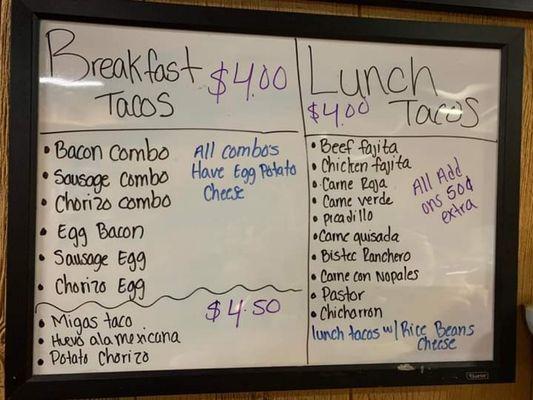 Breakfast
Tacos
$4.00
• Bacon combo
• Sausage combo
• Chorizo combo
• Egg Bacon
• Sausage Egg
• Chorizo Egg
All combo's
Have Egg Potato
Cheese
$4.50
• Migas taco
• Huevo ala mexicana
• Potato Chorizo
Lunch
$4.00 Tacos
• Beef fajita
• Chicken fajita
• Carne Roja
• Carne verde
• picadillo
• Carne guisada
• Bistec Ranchero
• Carne con Nopales
• Pastor
• Chicharron
All Add
ons 50¢
extra
lunch tacos w/ Rice Beans
Cheese